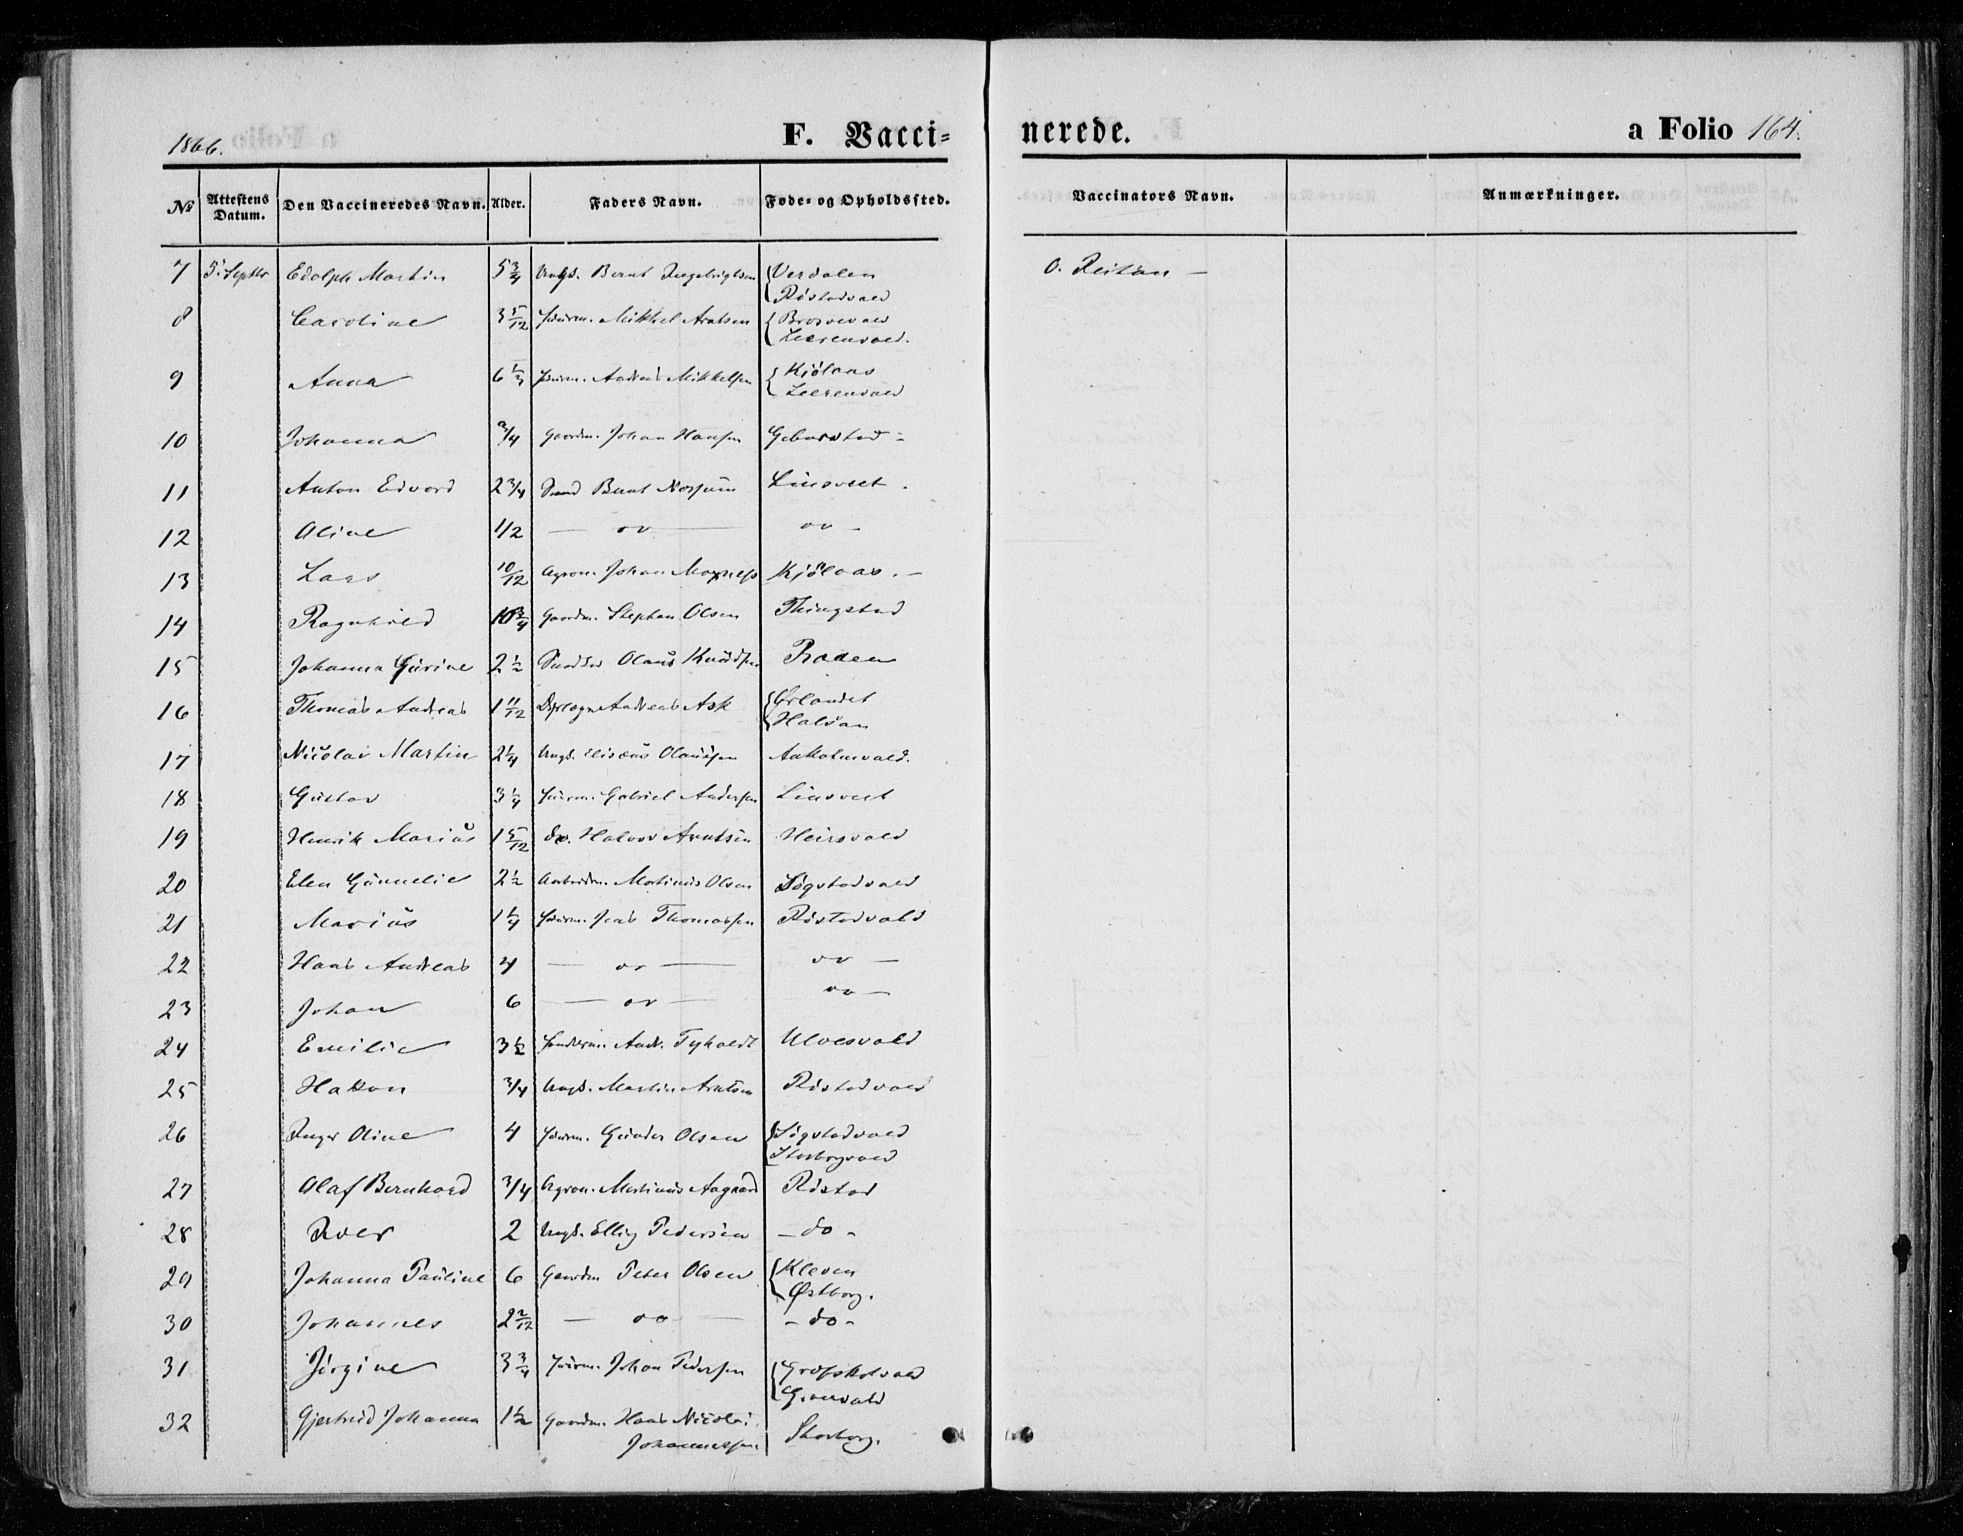 1866. F. Vacci= nerede. a Folio 164.
No Attestens Datum. Den Vaccineredes Navn. Alder. Faders Navn. Føde= og Opholdssted. Vaccinators Navn. Anmærkninger.
7 5. Septbr Edolph Martin 5 3/4 Ungk. Bernt Ingebrigtsen {Verdalen O. Reitan —
Røstadvald
8 Caroline 3 5/12 Huusm. Mikkel Arntsen {
Leerenvald.
9 Anna 6 Huusm. Andreas Mikkelsen {Kjölaas
Leerenvald
10 Johanna 3/4 Gaardm. Johan Hansen
11 Anton Edvard 2 3/4 Bernt Linsveet.
12 Oline 1/2 — do — do —
13 Lars 10/12 Agron. Johan Kjölaas. —
14 Ragnhild 10 3/4 Gaardm. Stephan Olsen Thingstad
15 Johanna Gurine 2 1/2 Olaus Knudsen
16 Thomas Andreas 1 11/12 Andreas Ask {Ørlandet
Halsan
17 Nicolai Martin 2 1/4 Ungk. Elisæus Olaussen
18 Gustav 3 1/4 Huusm. Gabriel Andersen Linsveet
19 Henrik Marius 1 5/12 do. Halvor Arntsen Heirsvald
20 Elen Gunnelie 2 1/2 Arbeidsm. Martinus Olsen
21 Marius 1 1/4 Huusm. Jens Thomassen Røstadvald
22 Hans Andreas 4 — do — do —
23 Johan 6 — do — do —
24 Emilie 3 1/2 Andr. Tyholdt Ulvesvald
25 Hakon 3/4 Ungk. Martin Arntsen Røstadvald
26 Inger Oline 4 Huusm. Gunder Olsen {
Storborgvald
27 Olaf Bernhard 3/4 Agron. Martinus Aagaard Røstad
28 Iver 2 Ungk. Elling Pedersen — do —
29 Johanna Pauline 6 Gaardm Peter Olsen {Kleven
Østborg.
30 Johannes 2 2/12 — do — — do —
31 Jørgine 3 3/4 Huusm. Johan Pedersen {

32 Gjertrud Johanna 1 1/2 Gaardm. Hans Nicolai Storborg.
Johannessen